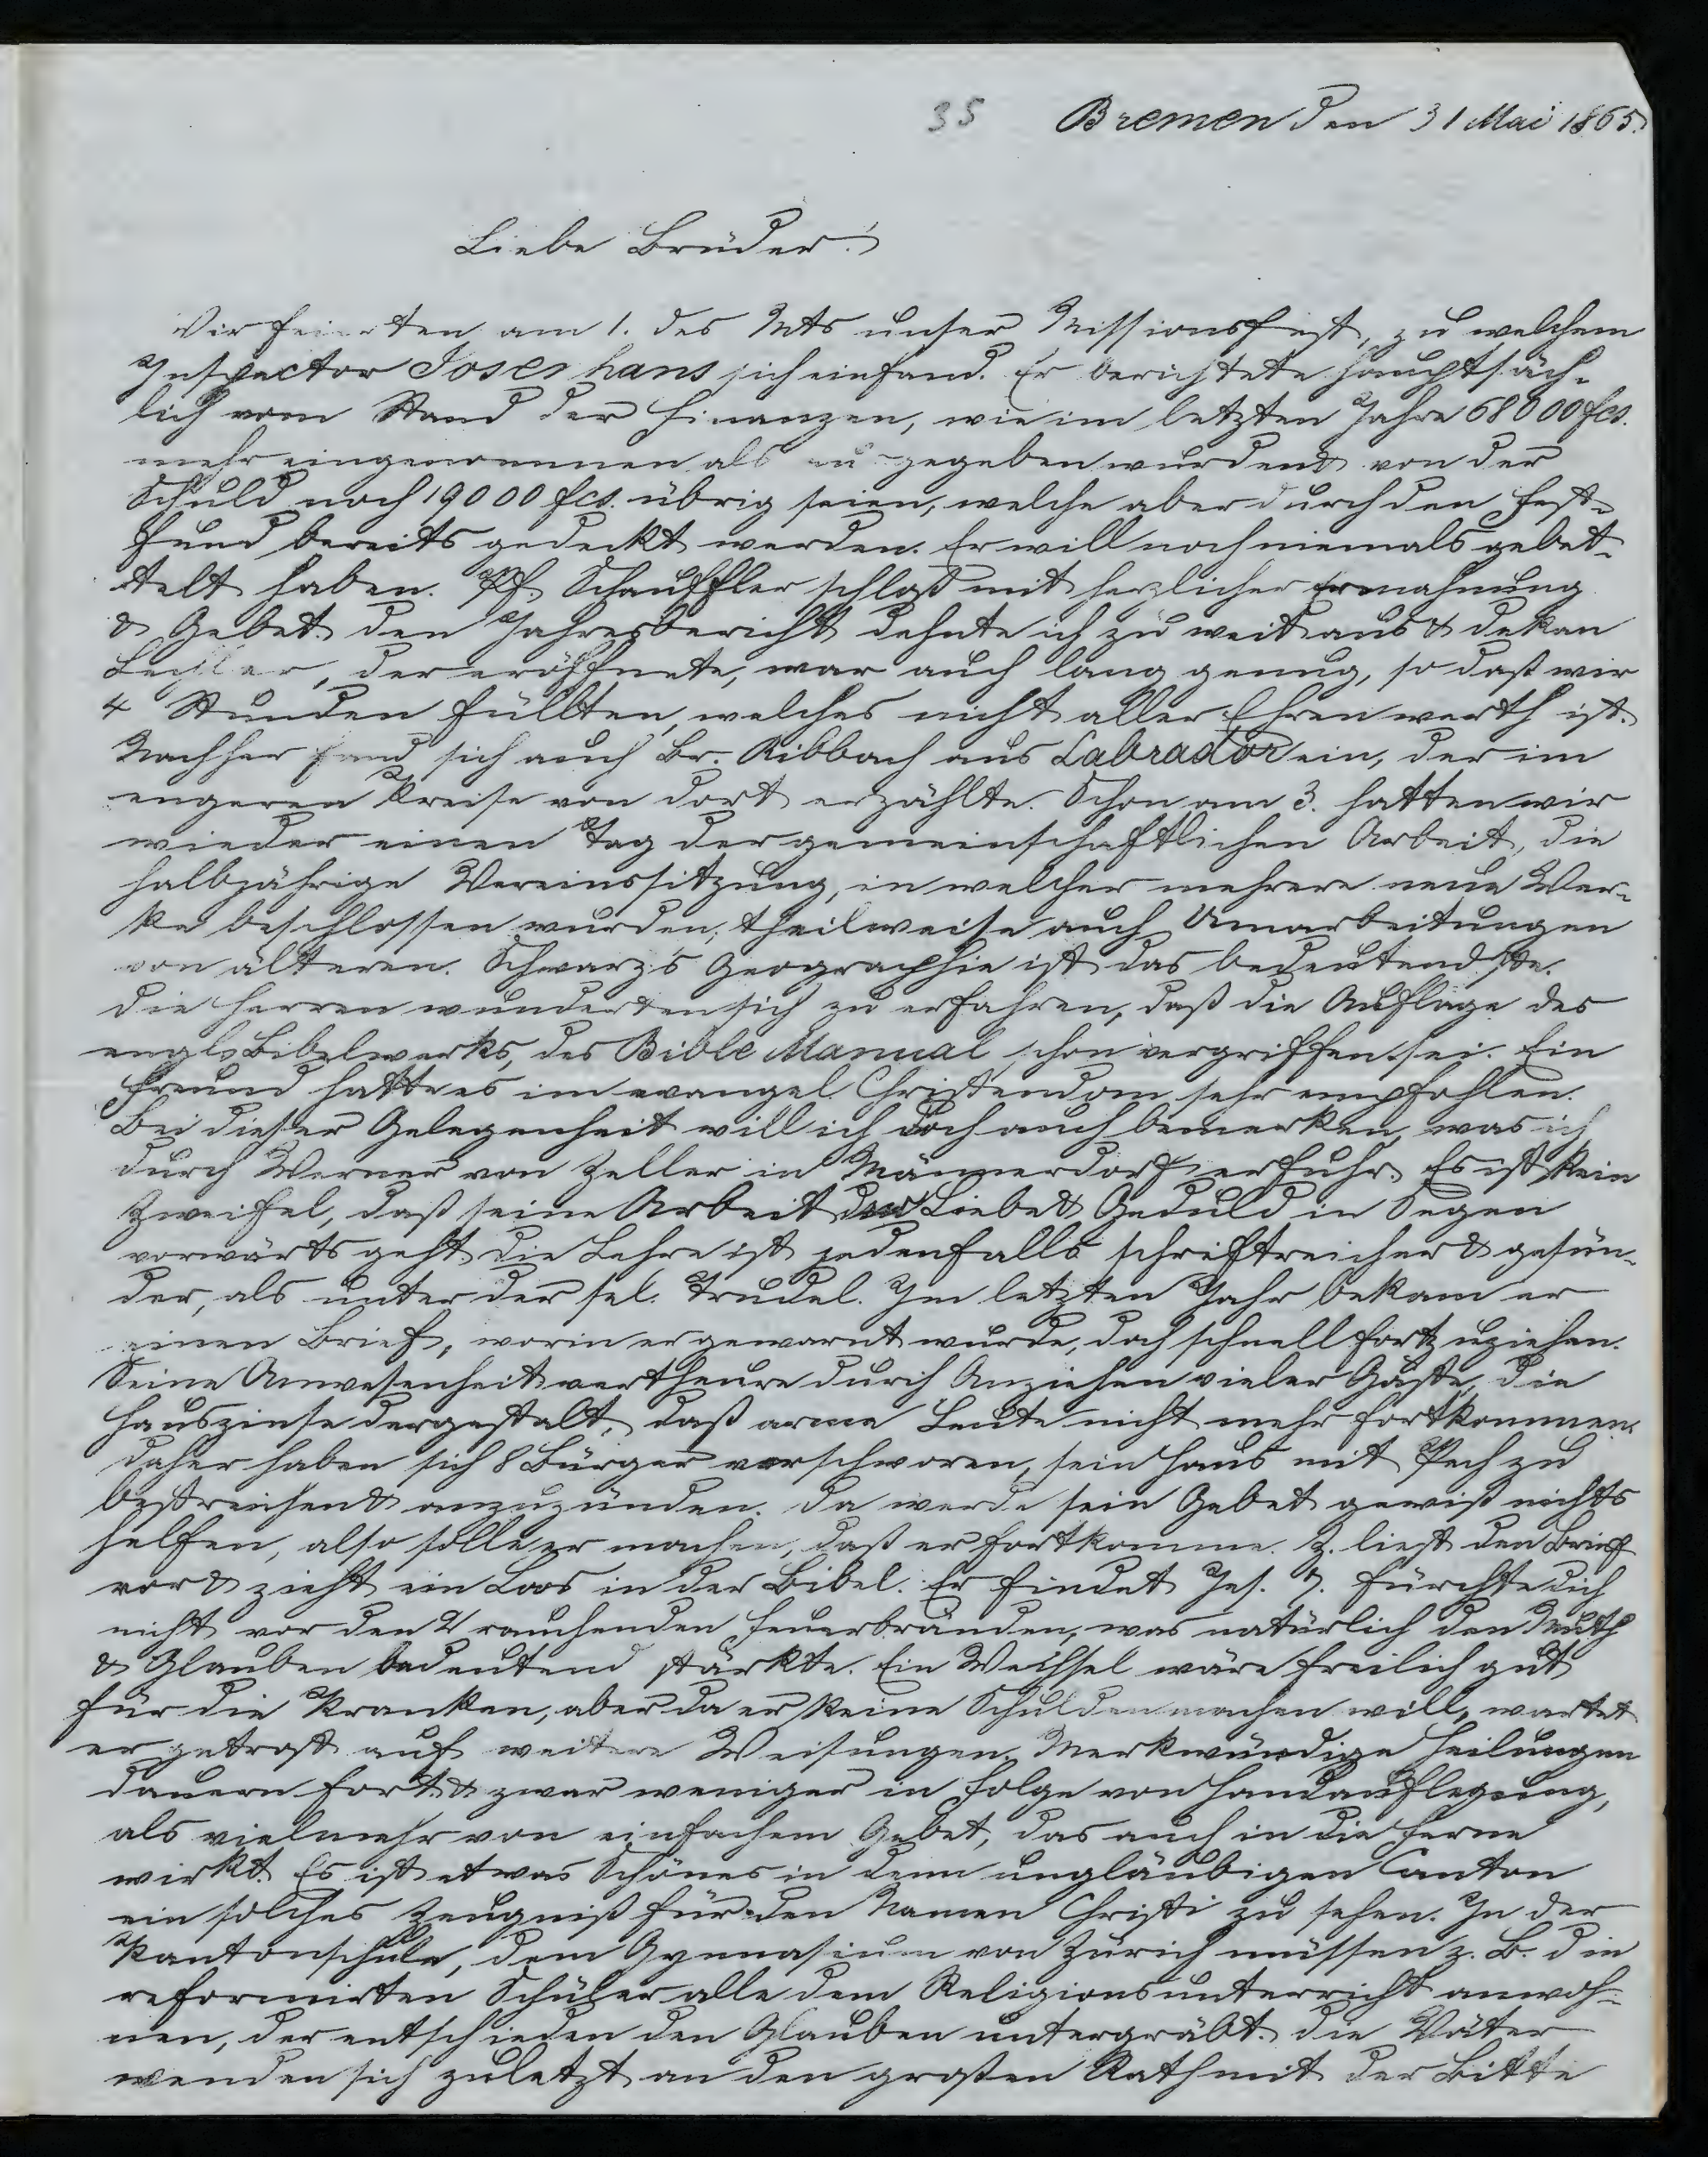 35 Bremen den 31 Mai 1865.
Liebe Brüder!
Wir feierten am 1. des Mts unser Missionsfest, zu welchem
Inspector Josenhans sich einfand. Er berichtete hauptsäch-
lich vom Stand der Finanzen, wie im letzten Jahre 68000 fcs.
mehr eingenommen als ausgegeben wurden & von der
Schuld noch 19000 fcs. übrig seien, welche aber durch den Fest-
fund bereits gedeckt werden. Er will noch niemals gebet-
telt haben. Pf. Schauffler schloß mit herzlicher Ermahnung
& Gebet. Den Jahresbericht dehnte ich zu weit aus & Dekan
Lechler, der eröffnete, war auch lang genug, so daß wir
4 Stunden füllten, welches nicht aller Ehren werth ist.
Nachher fand sich auch Br. Ribbach aus Labrador ein, der im
engeren Kreise von dort erzählte. Schon am 3. hatten wir
wieder einen Tag der gemeinschaftlichen Arbeit, die
halbjährige Vereinssitzung, in welcher mehrere neue Wer-
ke beschlossen wurden; theilweise auch Umarbeitungen
von älteren. Schwarz's Geographie ist das bedeutendste.
Die Herren wunderten sich zu erfahren, daß die Auflage des
engl. Bibelwerks, des Bible Manual, schon vergriffen sei. Ein
Freund hatte es im evangel. Christendom sehr empfohlen.
Bei dieser Gelegenheit will ich doch auch bemerken, was ich
durch Werner von Zeller in Männerdorf erfuhr. Es ist kein
Zweifel, daß seine Arbeit der Liebe & Geduld in Segen
vorwärts geht, die Lehre ist jedenfalls schriftreicher & gesün-
der, als unter der sel. Trudel. Im letzten Jahr bekam er
einen Brief, worin er gewarnt wurde, doch schnell fortzuziehen.
Seine Anwesenheit vertheure durch Anziehen vieler Gäste, die
Hauszinse dergestalt, daß arme Leute nicht mehr fortkommen.
Daher haben sich 8 Bürger verschworen, sein Haus mit Pech zu
bestreichen & anzuzünden. Da werde sein Gebet gewiß nichts
helfen, also solle er machen, daß er fortkomme. Z. liest den Brief
vor & zieht ein Loos in der Bibel. Er findet Jes. 7. Fürchte dich
nicht vor den 2 rauchenden Feuerbränden, was natürlich den Muth
& Glauben bedeutend stärkte. Ein Wechsel wäre freilich gut
für die Kranken, aber da er keine Schulden machen will, wartet
er getrost auf weitere Weisungen. Merkwürdige Heilungen
dauern fort & zwar weniger in Folge von Handauflegung,
als vielmehr von einfachem Gebet, das auch in die Ferne
wirkt. Es ist etwas Schönes in dem ungläubigen Canton
ein solches Zeugniß für den Namen Christi zu sehen. In der
Kantonschule, dem Gymnasium von Zürich müssen z. B. die
reformirten Schüler alle dem Religionsunterricht anwoh-
nen, der entschieden den Glauben untergräbt. Die Väter
wenden sich zuletzt an den großen Rath mit der Bitte